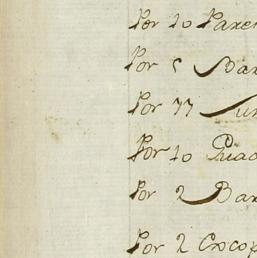 Por 10 Paxer
Por 5 Bar
Por 77
Por 10
Por 2 Bar
Por 2 Crocop